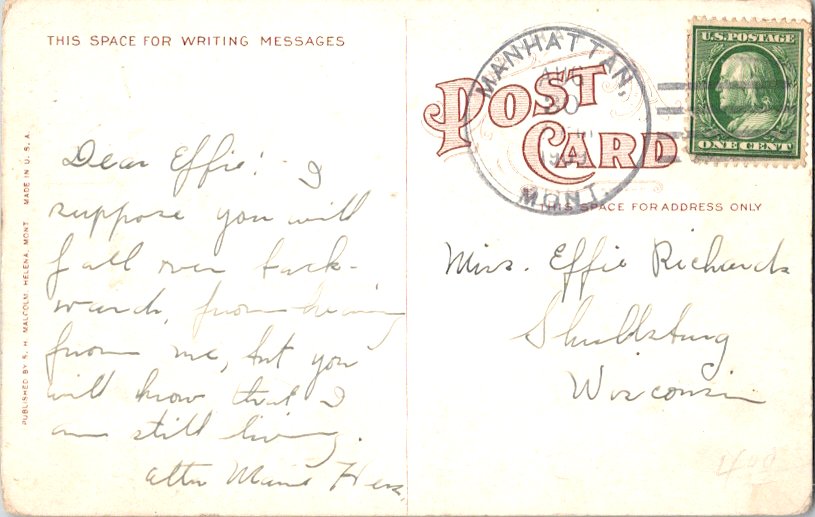 THIS SPACE FOR WRITING MESSAGES
PUBLISHED BY S. H. MALCOLM, HELENA, MONT. MADE IN U.S.A.
Dear Effie! I
suppose you will
fall over back-
wards, from hearing
from me, but you
will know that I
am still living.
POST CARD
MANHATTAN,
AUG
20
MONT.
U.S. POSTAGE
ONE CENT
THIS SPACE FOR ADDRESS ONLY
Miss. Effie Richards
Shullsburg
Wisconsin